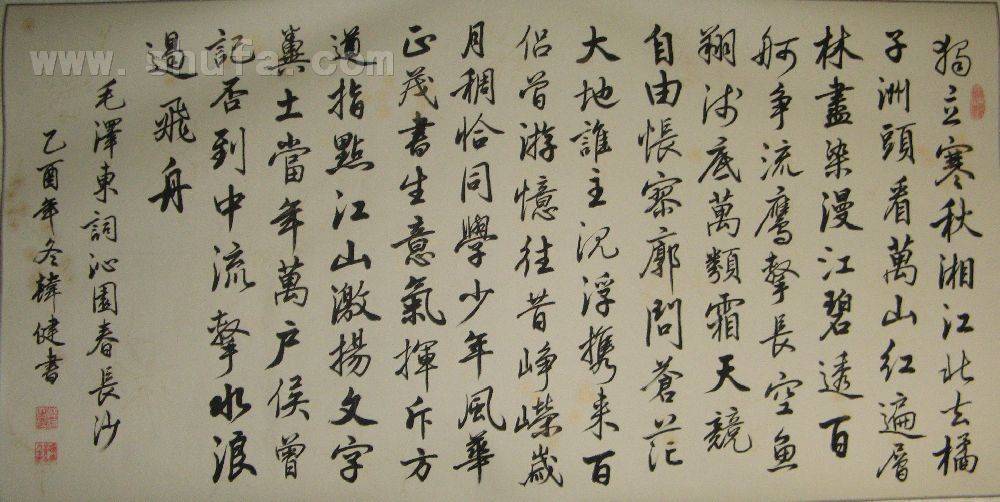 獨立寒秋湘江北去橘
子洲頭看萬山紅遍層
林盡染漫江碧透百
舸爭流鹰擊長空魚
翔浅底萬類霜天競
自由悵寥廓問蒼茫
大地誰主沉浮携来百
侣曾游憶往昔崢嶸歲
月稠恰同學少年風華
正茂書生意氣揮斥方
遒指點江山激揚文字
糞土當年萬户侯曾
記否到中流擊水浪
遏飛舟
毛澤東詞沁園春長沙
乙酉年冬健書
www.shufa.com